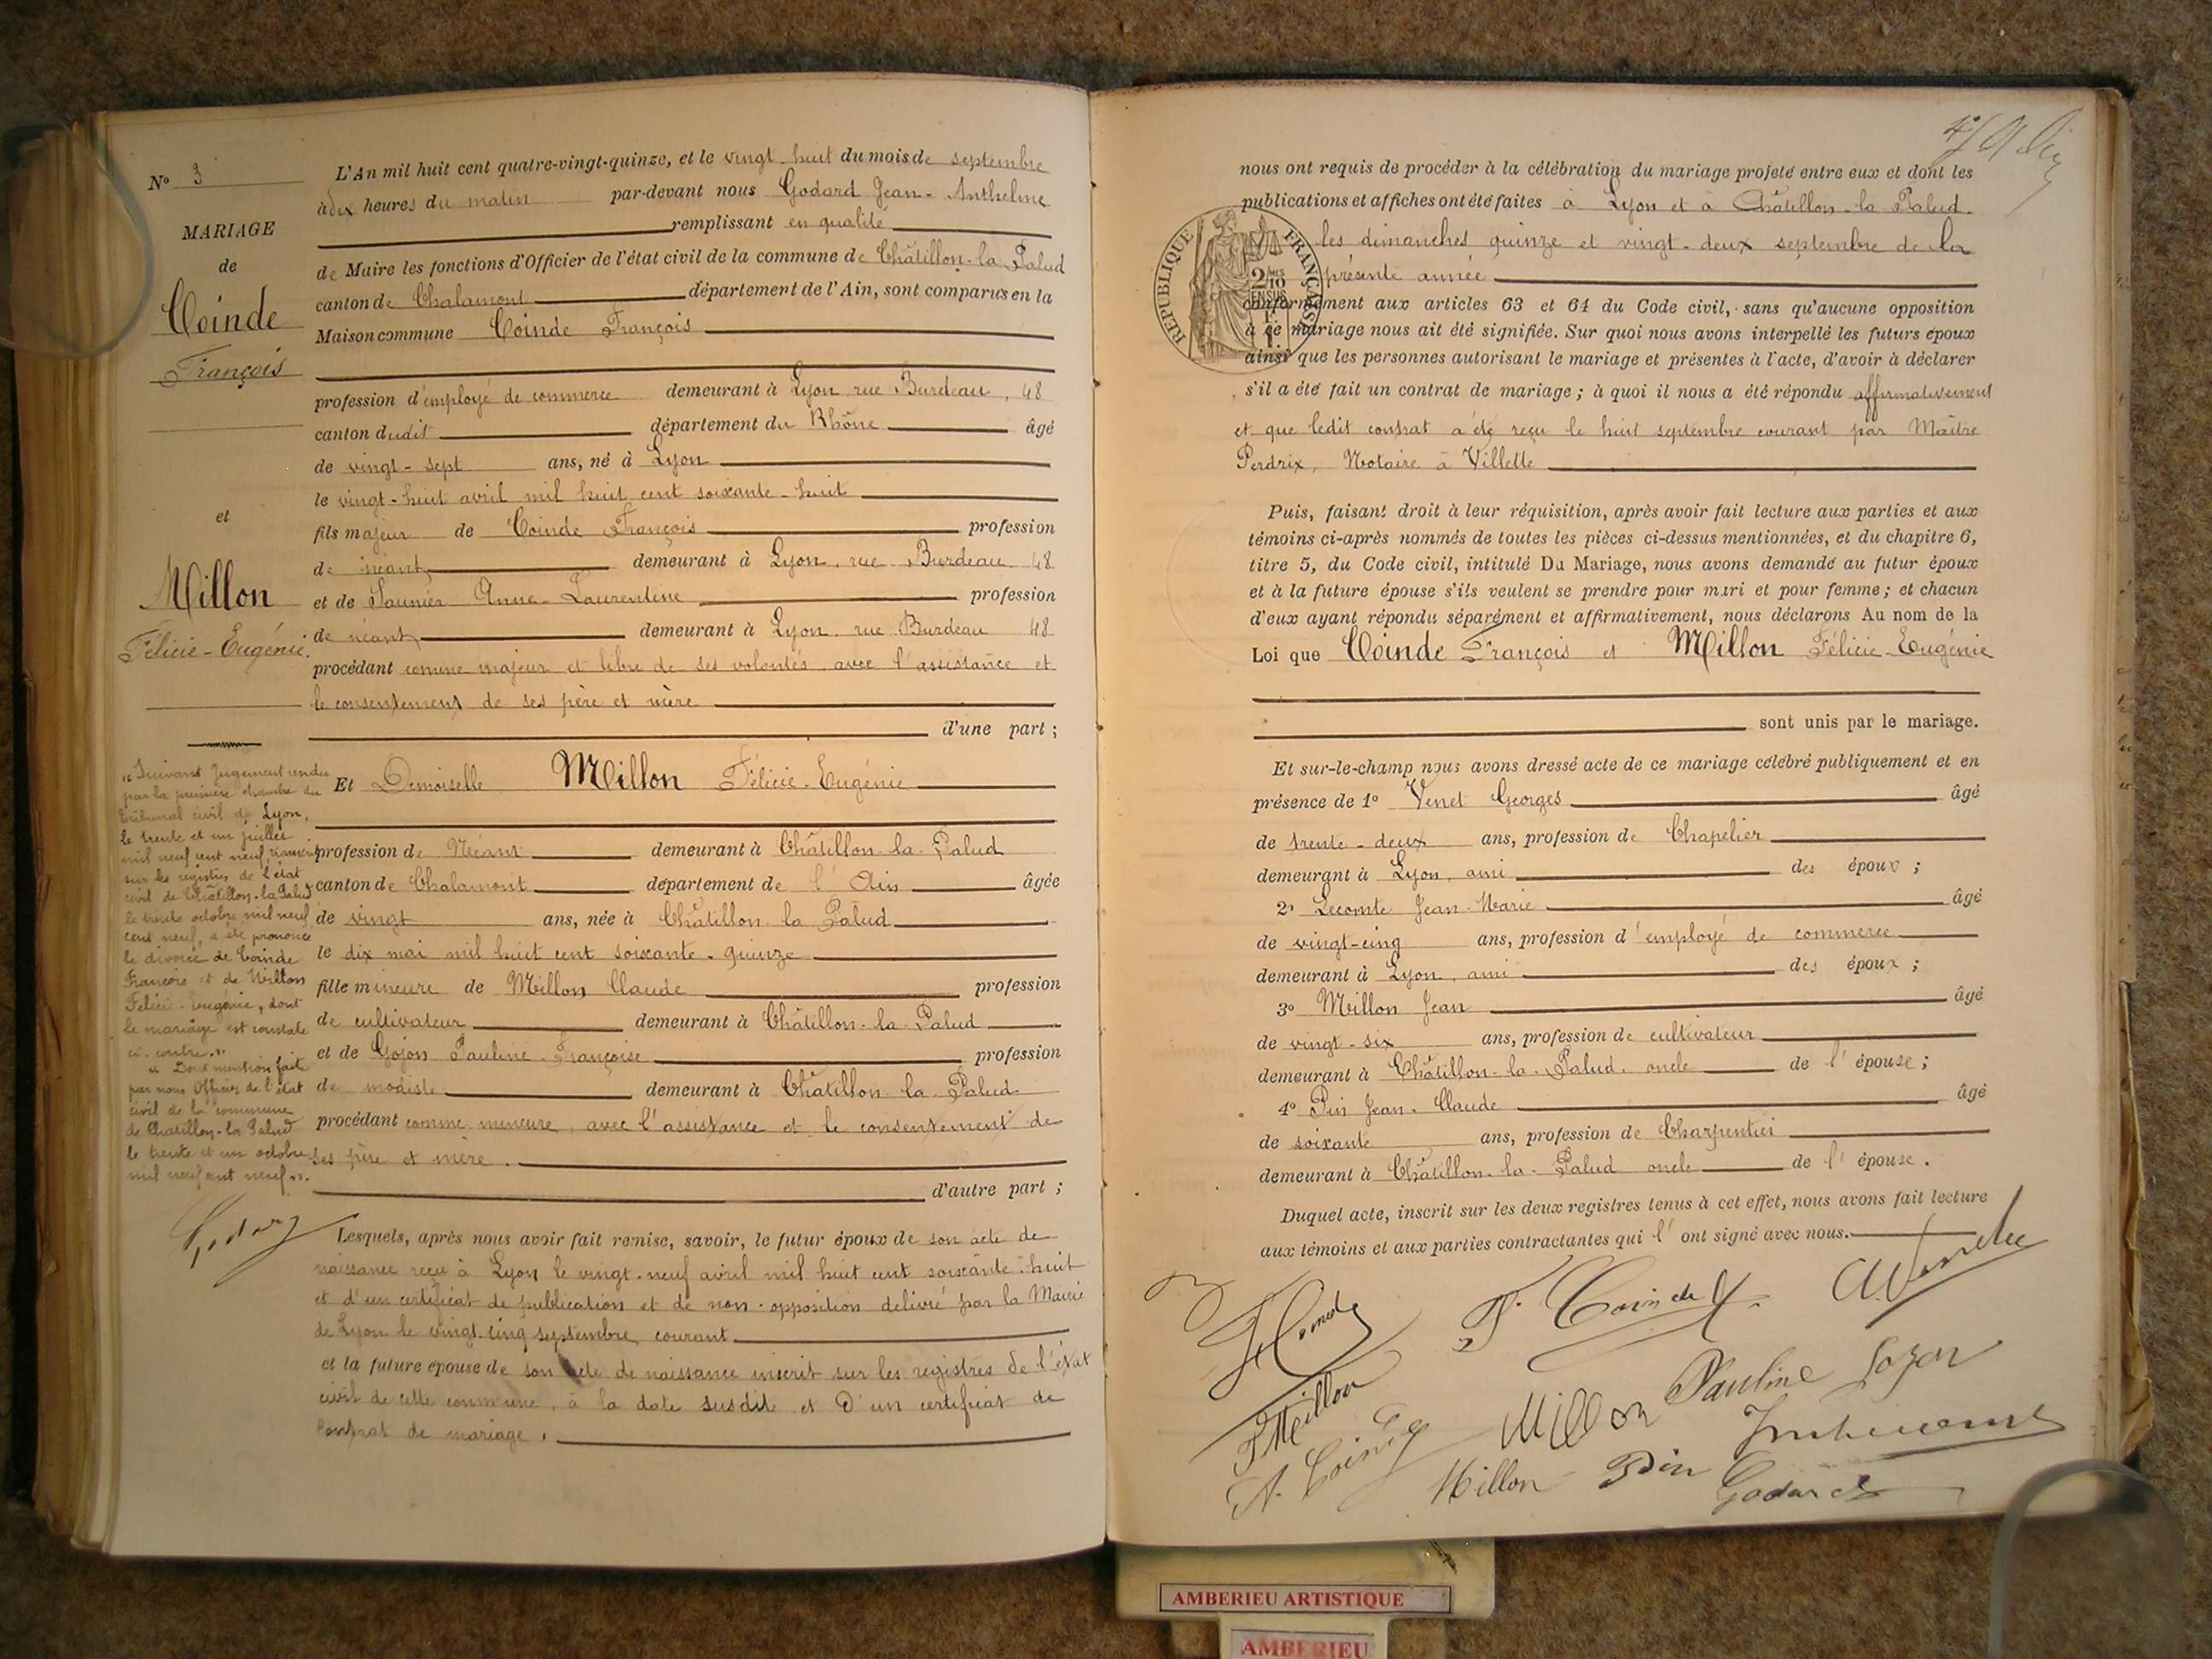 N° 3
MARIAGE
de
Coinde
François
et
Millon
Félicie-Eugénie.
"Suivant Jugement rendu
par la première chambre du
tribunal civil de Lyon,
le trente et un juillet
mil neuf cent neuf,
sur les registres de l'état
civil de Châtillon-la-Palud
le trente octobre mil neuf
cent neuf, a été prononcé
le divorce de Coinde
François et de Millon
Félicie-Eugénie, dont
le mariage est constaté
ci-contre."
"Dont mention faite
par nous Officier de l'état
civil de la commune
de Chatillon-la-Palud
le trente et un octobre
mil neuf cent neuf".
Godard
L'An mil huit cent quatre-vingt-quinze, et le vingt-huit du mois de septembre
à dix heures du matin par-devant nous Godard Jean-Anthelme
remplissant en qualité
de Maire les fonctions d'Officier de l'état civil de la commune de Châtillon-la-Palud
canton de Chalamont département de l'Ain, sont comparus en la
Maison commune Coinde François
profession d'employé de commerce demeurant à Lyon rue Burdeau, 48
canton dudit département du Rhône âgé
de vingt-sept ans, né à Lyon
le vingt-huit avril mil huit cent soixante-huit
fils majeur de Coinde François profession
de néant demeurant à Lyon, rue Burdeau 48
et de Saunier Anne-Laurentine profession
de néant demeurant à Lyon, rue Burdeau 48
procédant comme majeur et libre de ses volontés avec l'assistance et
le consentement de ses père et mère
d'une part ;
Et Demoiselle Millon Félicie-Eugénie
profession de Néant demeurant à Châtillon-la-Palud
canton de Chalamont département de l'Ain âgée
de vingt ans, née à Châtillon-la-Palud
le dix mai mil huit cent soixante-quinze
fille mineure de Millon Claude profession
de cultivateur demeurant à Châtillon-la-Palud
et de Gojon Pauline-Françoise profession
de modiste demeurant à Châtillon-la-Palud
procédant comme mineure, avec l'assistance et le consentement de
ses père et mère.
d'autre part ;
Lesquels, après nous avoir fait remise, savoir, le futur époux de son acte de
naissance reçu à Lyon le vingt-neuf avril mil huit cent soixante-huit
et d'un certificat de publication et de non-opposition délivré par la Mairie
de Lyon le vingt-cinq septembre courant
et la future épouse de son acte de naissance inscrit sur les registres de l'état
civil de cette commune, à la date susdite et d'un certificat de
contrat de mariage.
nous ont requis de procéder à la célébration du mariage projeté entre eux et dont les
publications et affiches ont été faites à Lyon et à Châtillon-la-Palud
les dimanches quinze et vingt-deux septembre de la
présente année
RÉPUBLIQUE FRANÇAISE
conformément aux articles 63 et 64 du Code civil, sans qu'aucune opposition
à ce mariage nous ait été signifiée. Sur quoi nous avons interpellé les futurs époux
ainsi que les personnes autorisant le mariage et présentes à l'acte, d'avoir à déclarer
s'il a été fait un contrat de mariage ; à quoi il nous a été répondu affirmativement
et que ledit contrat a été reçu le huit septembre courant par Maître
Perdrix, Notaire à Villette
Puis, faisant droit à leur réquisition, après avoir fait lecture aux parties et aux
témoins ci-après nommés de toutes les pièces ci-dessus mentionnées, et du chapitre 6,
titre 5, du Code civil, intitulé Du Mariage, nous avons demandé au futur époux
et à la future épouse s'ils veulent se prendre pour mari et pour femme ; et chacun
d'eux ayant répondu séparément et affirmativement, nous déclarons Au nom de la
Loi que Coinde François et Millon Félicie-Eugénie
sont unis par le mariage.
Et sur-le-champ nous avons dressé acte de ce mariage célébré publiquement et en
présence de 1° Venet Georges âgé
de trente-deux ans, profession de Chapelier
demeurant à Lyon, ami des époux ;
2° Lecomte Jean-Marie âgé
de vingt-cinq ans, profession d'employé de commerce
demeurant à Lyon, ami des époux ;
3° Millon Jean âgé
de vingt-six ans, profession de cultivateur
demeurant à Châtillon-la-Palud, oncle de l'épouse ;
4° Pin Jean-Claude âgé
de soixante ans, profession de Charpentier
demeurant à Châtillon-la-Palud oncle de l'épouse.
Duquel acte, inscrit sur les deux registres tenus à cet effet, nous avons fait lecture
aux témoins et aux parties contractantes qui l'ont signé avec nous.
F. Coinde
Pauline Gojon
Millon
F Millon
A. Coinde
Millon Pin
Godard
AMBERIEU ARTISTIQUE
AMBERIEU